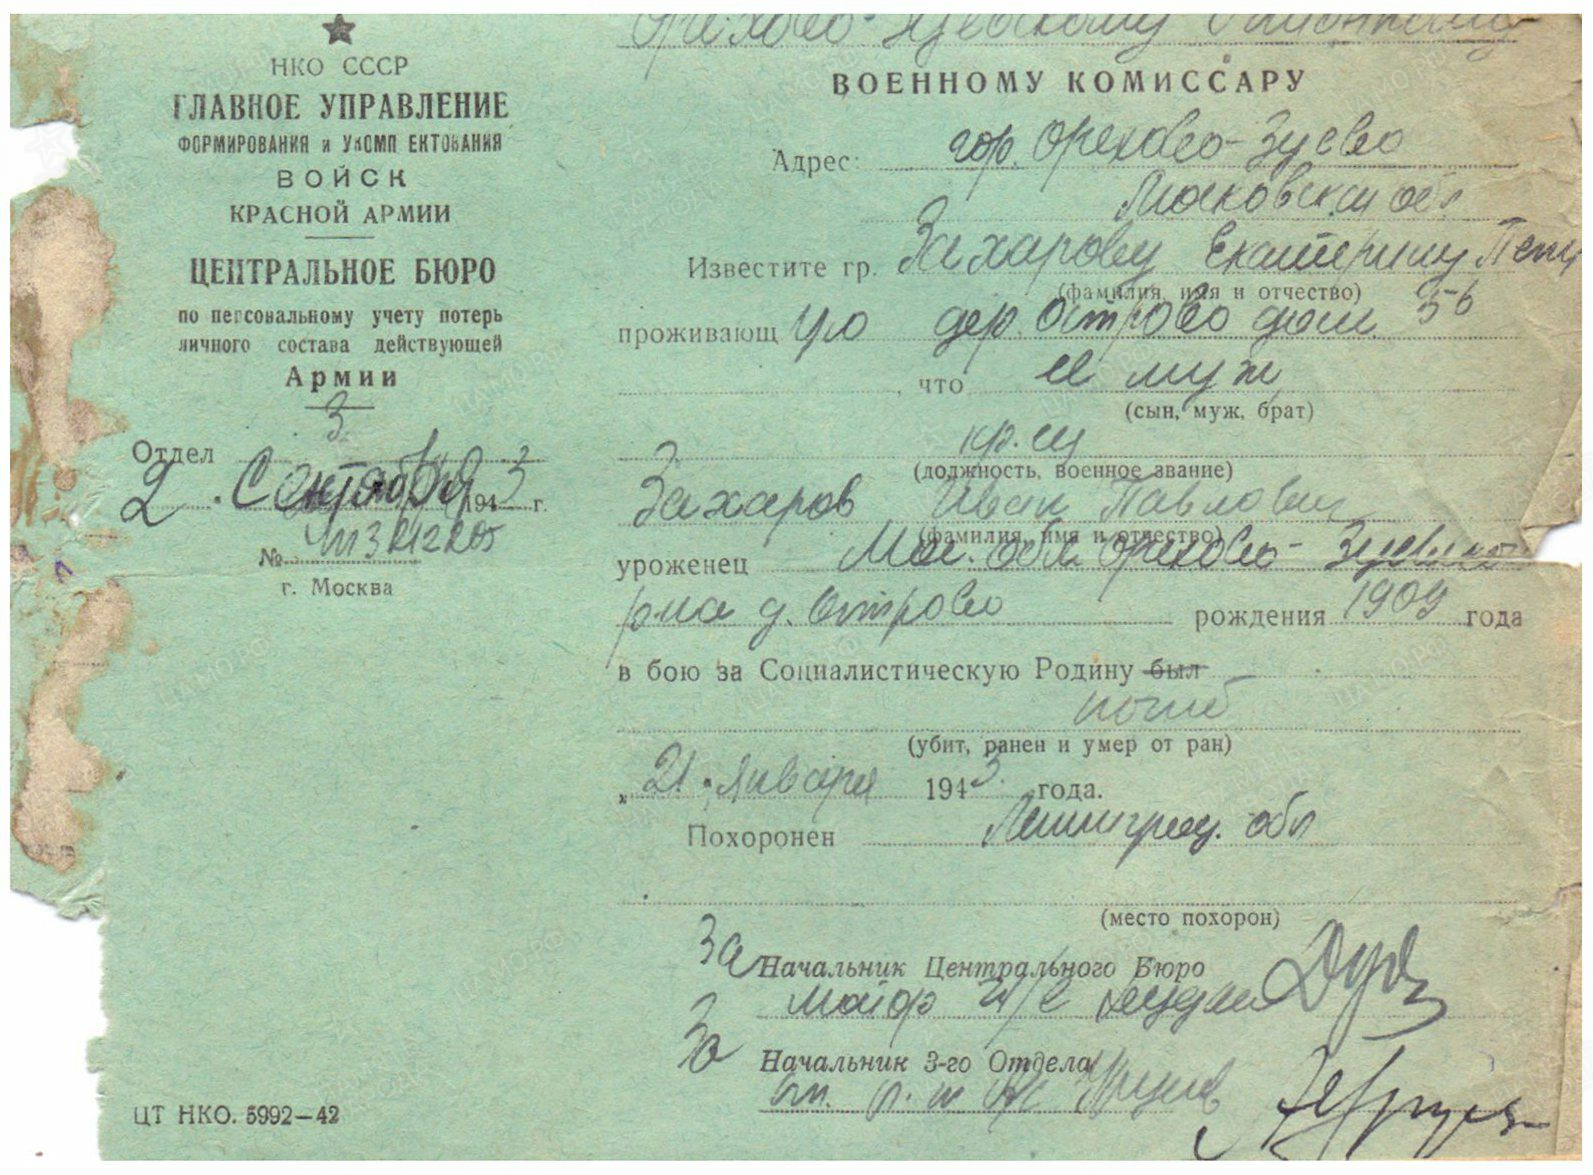 НКО СССР
ГЛАВНОЕ УПРАВЛЕНИЕ
ФОРМИРОВАНИЯ и УКОМП ЕКТОВАНИЯ
ВОЙСК
КРАСНОЙ АРМИИ
ЦЕНТРАЛЬНОЕ БЮРО
по персональному учету потерь
личного состава действующей
Армии
3
Отдел
2 . Сентября 1943 г.
№
г. Москва
ЦТ НКО. 5992—42
Орехово-Зуевскому
ВОЕННОМУ КОМИССАРУ
Адрес: гор. Орехово-Зуево
Московской обл
Известите гр. Захарову Екатерину
(фамилия, имя и отчество)
проживающ ую дер. Острово дом 56
, что её муж
(сын, муж, брат)
кр-ц
(должность, военное звание)
Захаров Иван Павлович
(фамилия, имя и отчество)
уроженец Мос. обл. Орехово-Зуевского
р-на д. Острово рождения 1909 года
в бою за Социалистическую Родину был
погиб
(убит, ранен и умер от ран)
„ 21 " января 1943 года.
Похоронен Ленинград. обл
(место похорон)
За Начальник Центрального Бюро
майор
За Начальник 3-го Отдела